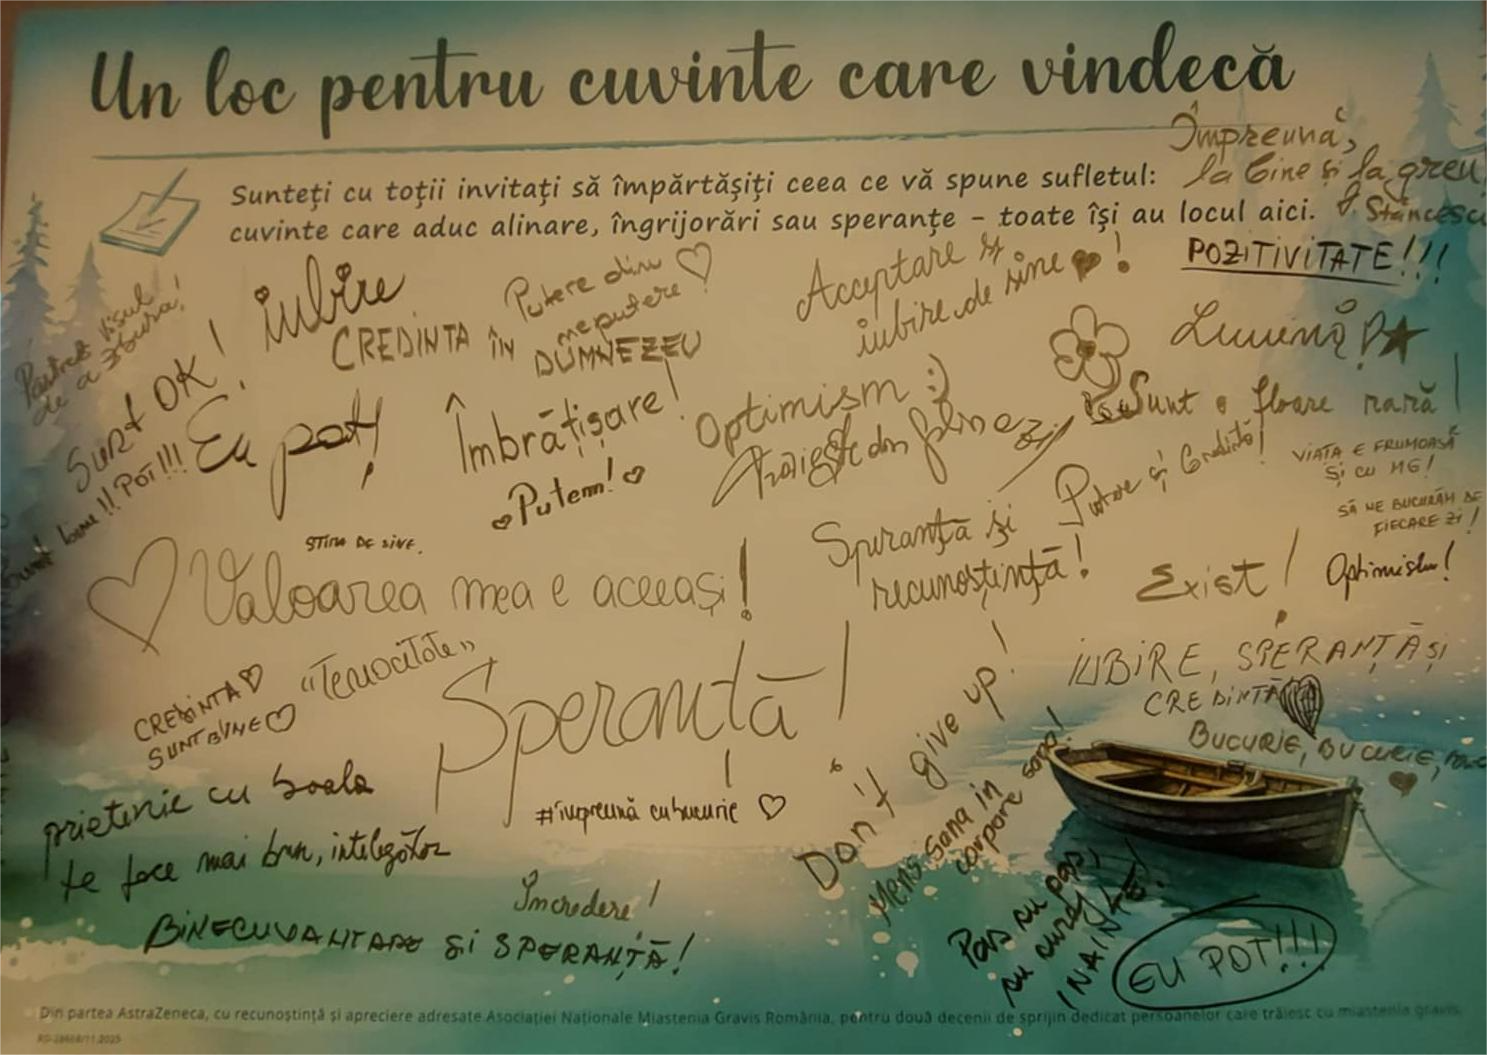 Un loc pentru cuvinte care vindecă
Împreună,
la bine și la greu
Stăncescu
Sunteți cu toții invitați să împărtășiți ceea ce vă spune sufletul:
cuvinte care aduc alinare, îngrijorări sau speranțe – toate își au locul aici.
POZITIVITATE!!!
Păstrez visul
de a zbura!
Sunt OK!
iubire
Putere din
neputere!
CREDINTA ÎN
DUMNEZEU
Acceptare și
iubire de sine!
Lumină
Sunt o floare rară!
Eu pot!
POT!!!
Sunt bine!!
Îmbrățișare!
Putem!
Optimism :)
Trăiește din plin azi!
Putere și Credință!
VIAȚA E FRUMOASĂ
ȘI CU MG!
SĂ NE BUCURĂM DE
FIECARE ZI!
STIMA DE SINE.
Valoarea mea e aceeași!
Speranță și
recunoștință!
Exist!
Optimism!
CREDINTA
SUNT BINE
"Tenacitate"
Speranță!
IUBIRE, SPERANȚĂ ȘI
CREDINȚĂ
BUCURIE, BUCURIE,
Don't give up!
Mens sana in
corpore sano!
prietenie cu boala
te face mai bun, intelegător
#împreună cu bucurie
Încredere!
BINECUVANTARE ȘI SPERANȚĂ!
Pas cu pas,
cu curaj
INAINTE!
EU POT!!!
Din partea AstraZeneca, cu recunoștință și apreciere adresate Asociației Naționale Miastenia Gravis România, pentru două decenii de sprijin dedicat persoanelor care trăiesc cu miastenia gravis.